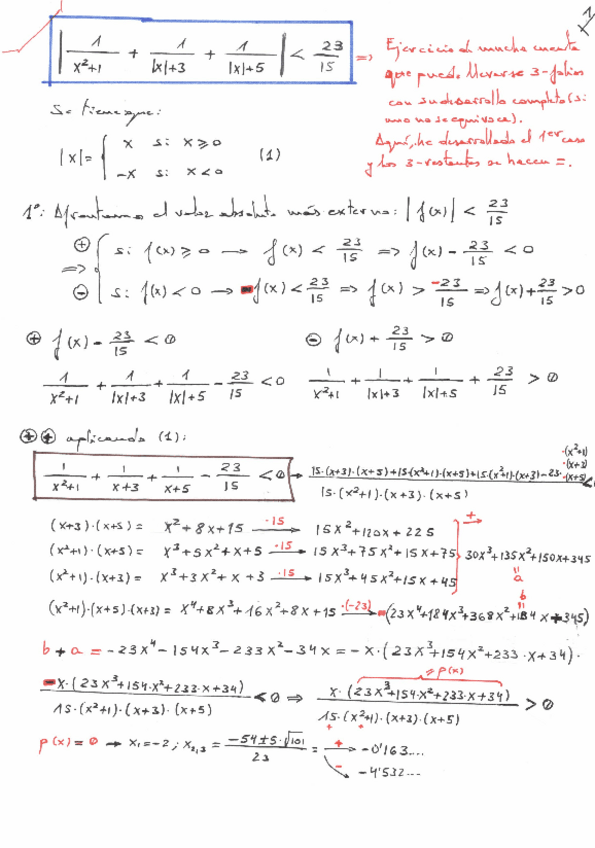 1
| 1/(x²+1) + 1/(|x|+3) + 1/(|x|+5) | < 23/15 ⇒ Ejercicio de mucha cuenta
que puede llevarse 3-folios
con su desarrollo completo (si
uno no se equivoca).
Aquí, he desarrollado el 1er caso
y los 3-restantes se hacen =.
Se tiene que:
|x| = { x si x ≥ 0
-x si x < 0 (1)
1º: Afrontamos el valor absoluto más externo: |f(x)| < 23/15
⊕ si f(x) ≥ 0 → f(x) < 23/15 ⇒ f(x) - 23/15 < 0
⇒
⊖ si f(x) < 0 → -f(x) < 23/15 ⇒ f(x) > -23/15 ⇒ f(x) + 23/15 > 0
⊕ f(x) - 23/15 < 0 ⊖ f(x) + 23/15 > 0
1/(x²+1) + 1/(|x|+3) + 1/(|x|+5) - 23/15 < 0 1/(x²+1) + 1/(|x|+3) + 1/(|x|+5) + 23/15 > 0
⊕⊕ aplicando (1):
1/(x²+1) + 1/(x+3) + 1/(x+5) - 23/15 < 0 → (15·(x+3)·(x+5)+15·(x²+1)·(x+5)+15·(x²+1)·(x+3)-23·(x²+1)·(x+3)·(x+5))/(15·(x²+1)·(x+3)·(x+5)) <
(x+3)·(x+5) = x²+8x+15 —·15→ 15x²+120x+225
(x²+1)·(x+5) = x³+5x²+x+5 —·15→ 15x³+75x²+15x+75 + → 30x³+135x²+150x+345
(x²+1)·(x+3) = x³+3x²+x+3 —·15→ 15x³+45x²+15x+45 = a
b =
(x²+1)·(x+5)·(x+3) = x⁴+8x³+16x²+8x+15 —·(-23)→ -(23x⁴+184x³+368x²+184x+345)
b + a = -23x⁴-154x³-233x²-34x = -x·(23x³+154x²+233·x+34)·
= p(x)
-x·(23x³+154·x²+233·x+34)/(15·(x²+1)·(x+3)·(x+5)) < 0 ⇒ x·(23x³+154·x²+233·x+34)/(15·(x²+1)·(x+3)·(x+5)) > 0
+ +
p(x) = 0 → x₁ = -2; x₂,₃ = (-54±5·√101)/23 = + → -0'163....
- → -4'532...